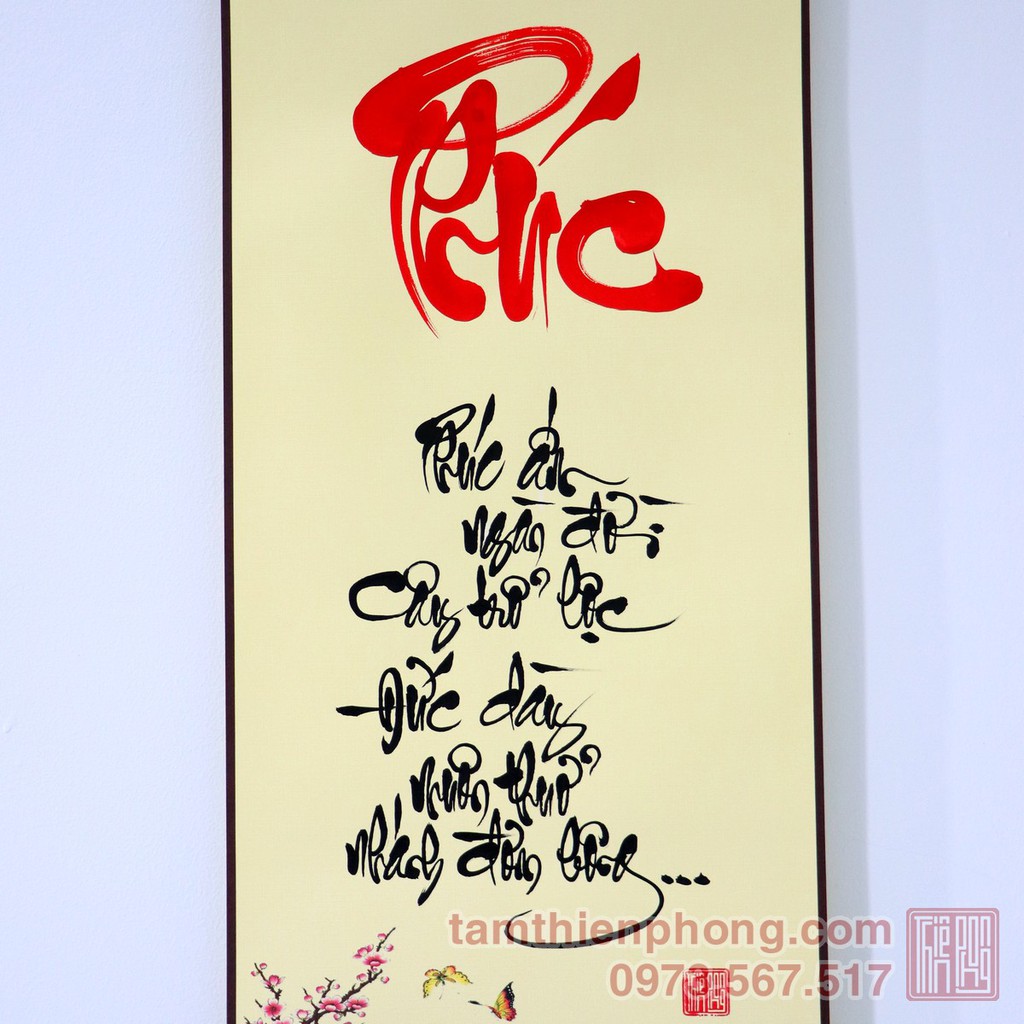 Phúc
Phúc ấm
ngàn đời
Cây trổ lộc
Đức dày
muôn thuở
nhánh đơm bông...
tamthienphong.com
0979.567.517